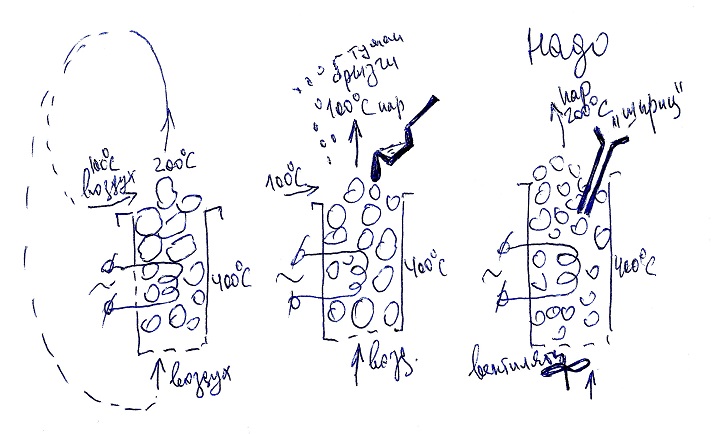 100°C
воздух
200°C
400°C
~
воздух
туман
брызги
100°C пар
100°C
400°C
~
возд.
Надо
пар
200°C
"шприц"
400°C
~
вентилятор